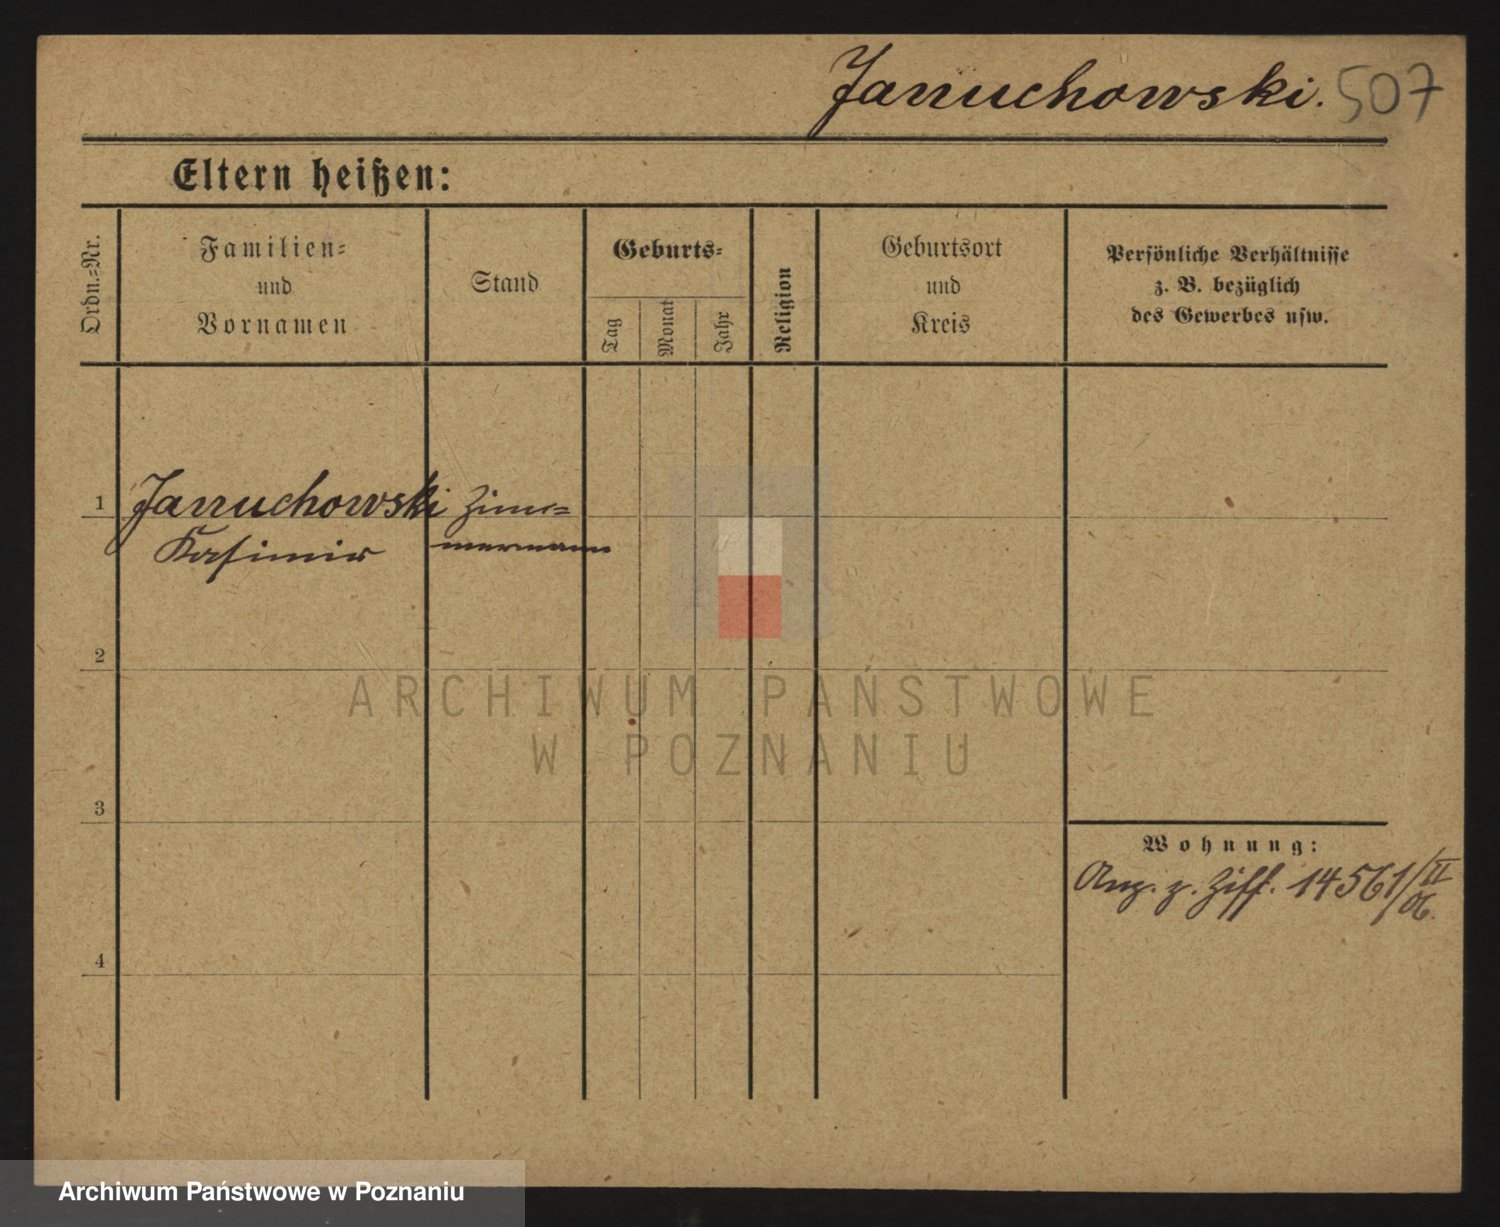 Januchowski. 507
Eltern heißen:
Ordn.=Nr.
Familien=
und
Vornamen
Stand
Geburts=
Tag
Monat
Jahr
Religion
Geburtsort
und
Kreis
Persönliche Verhältnisse
z. B. bezüglich
des Gewerbes usw.
1 Januchowski Zim=
Kasimir mermann
2
ARCHIWUM PAŃSTWOWE
W POZNANIU
3
Wohnung:
Anz. z. Ziff. 14561/II
06.
4
Archiwum Państwowe w Poznaniu